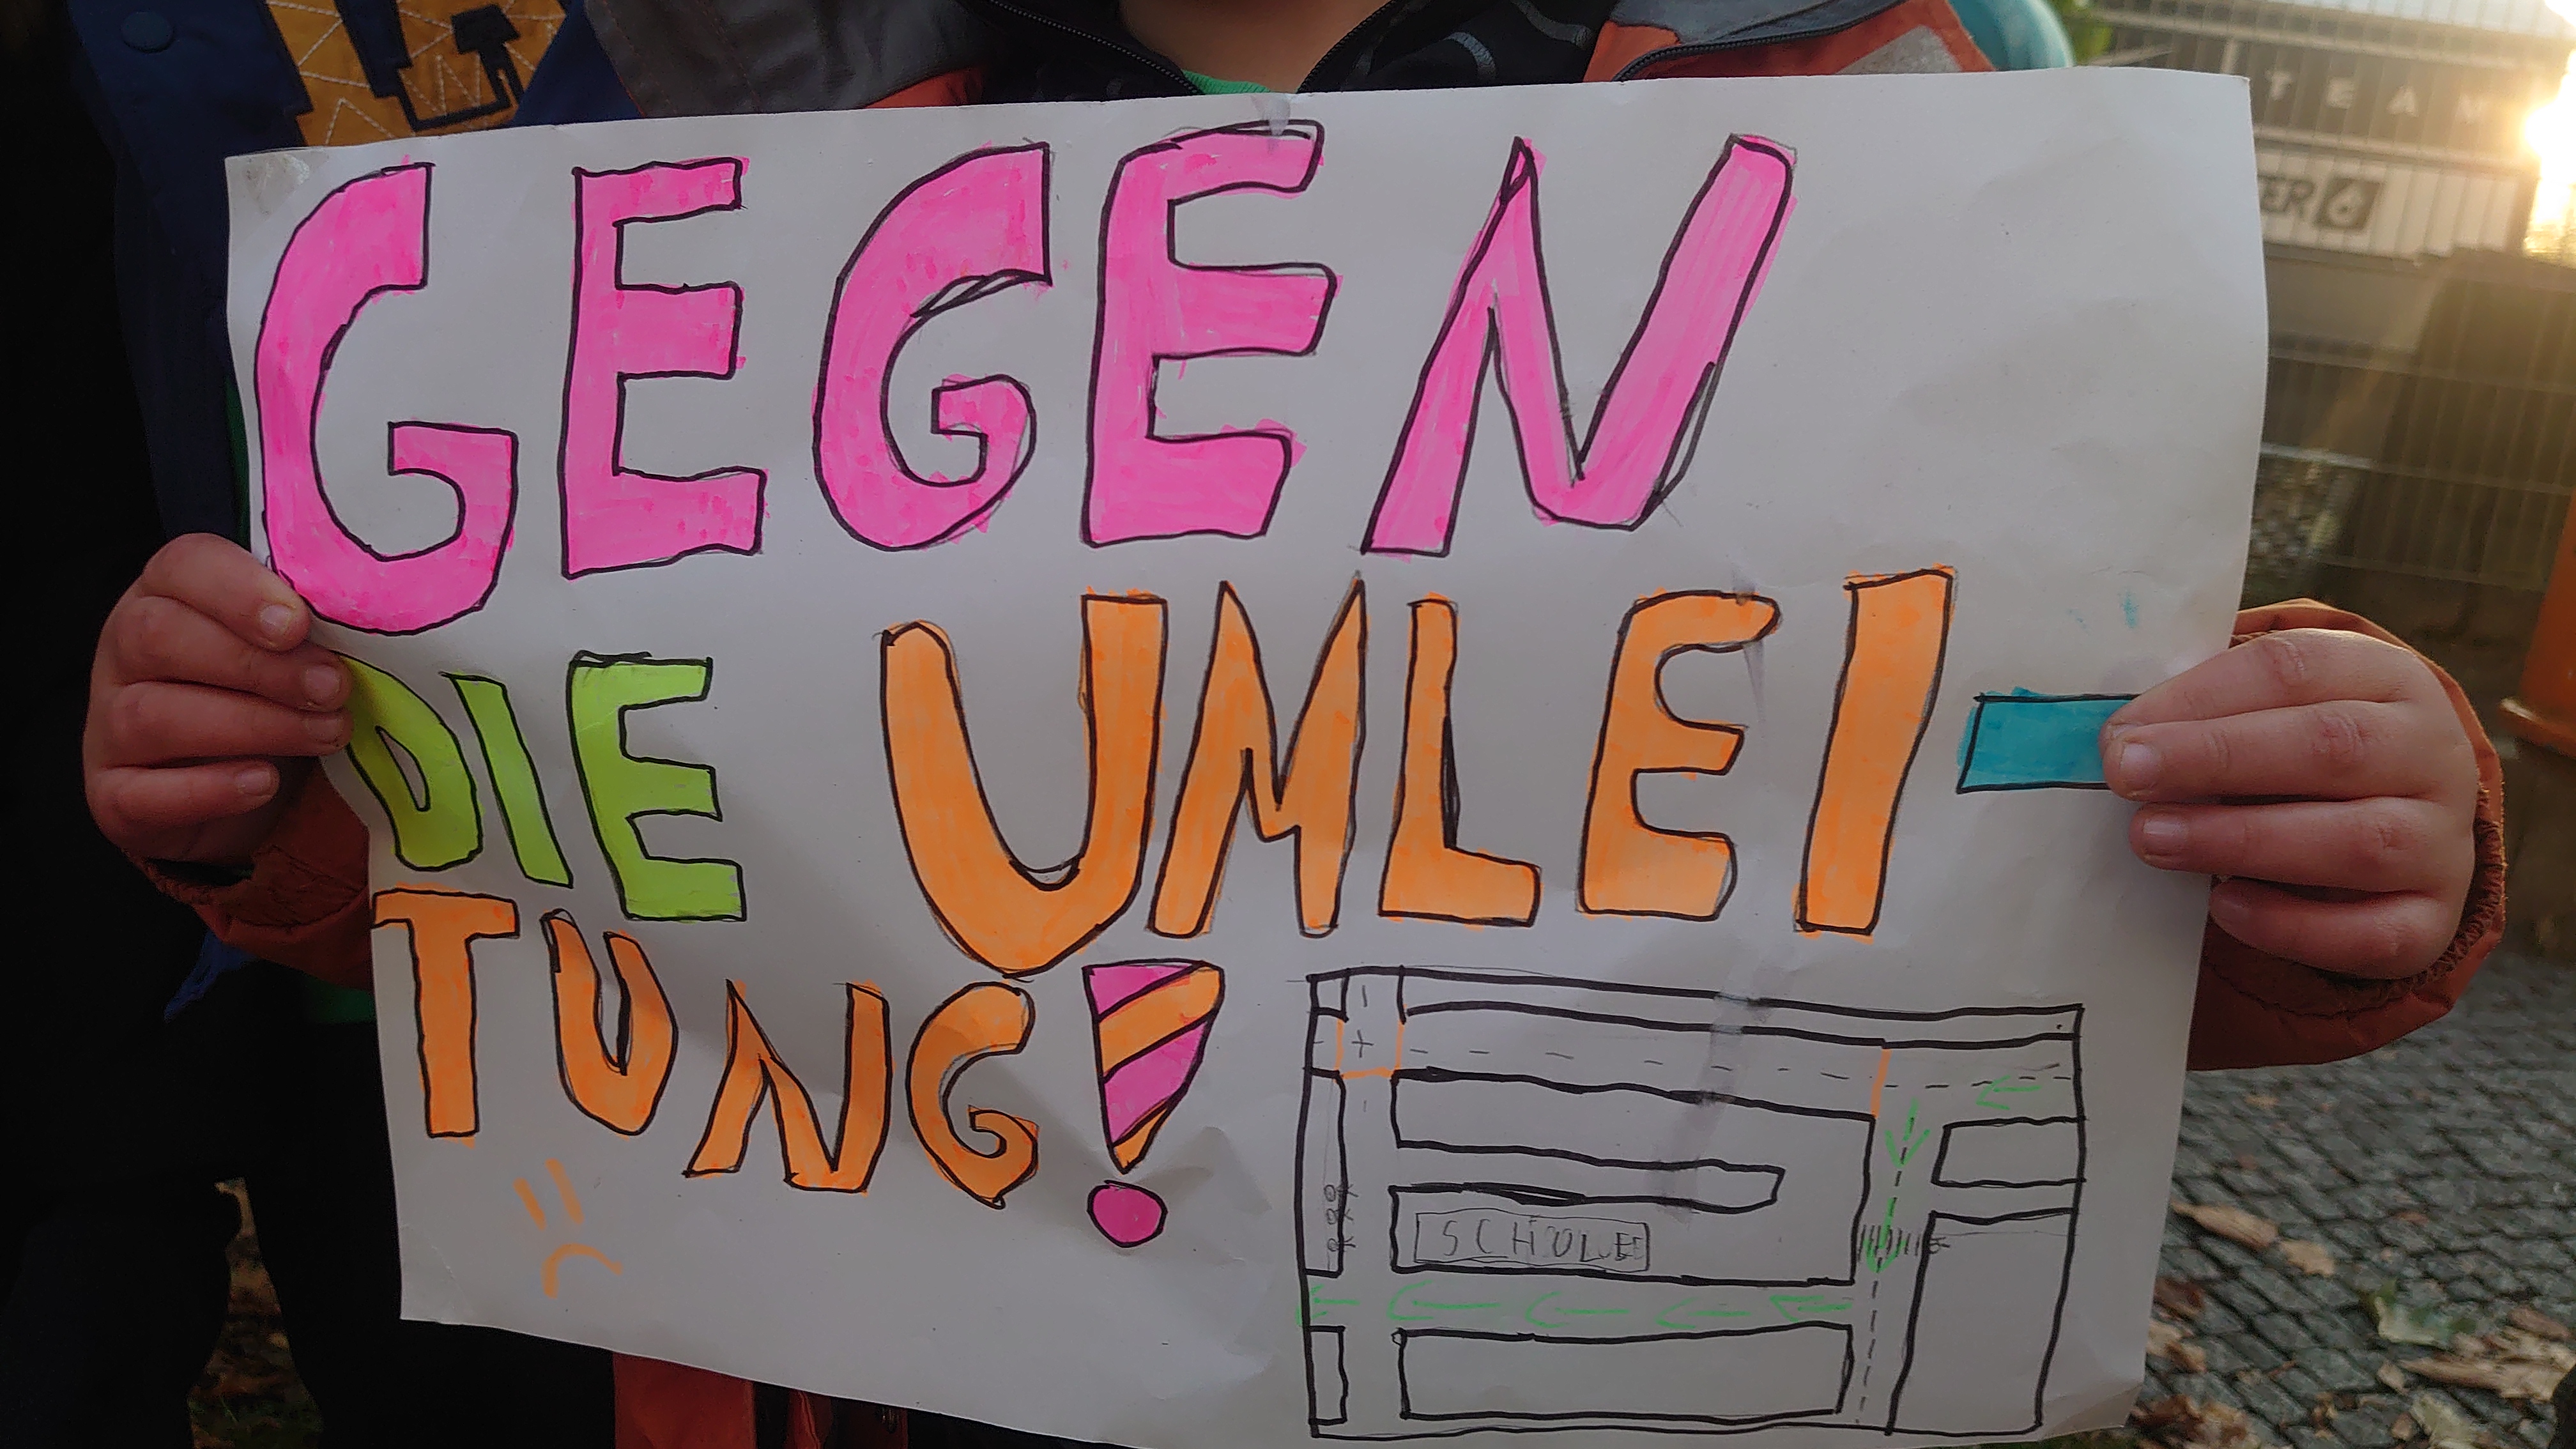 GEGEN
DIE UMLEI-
TUNG!
SCHULE
TEAM